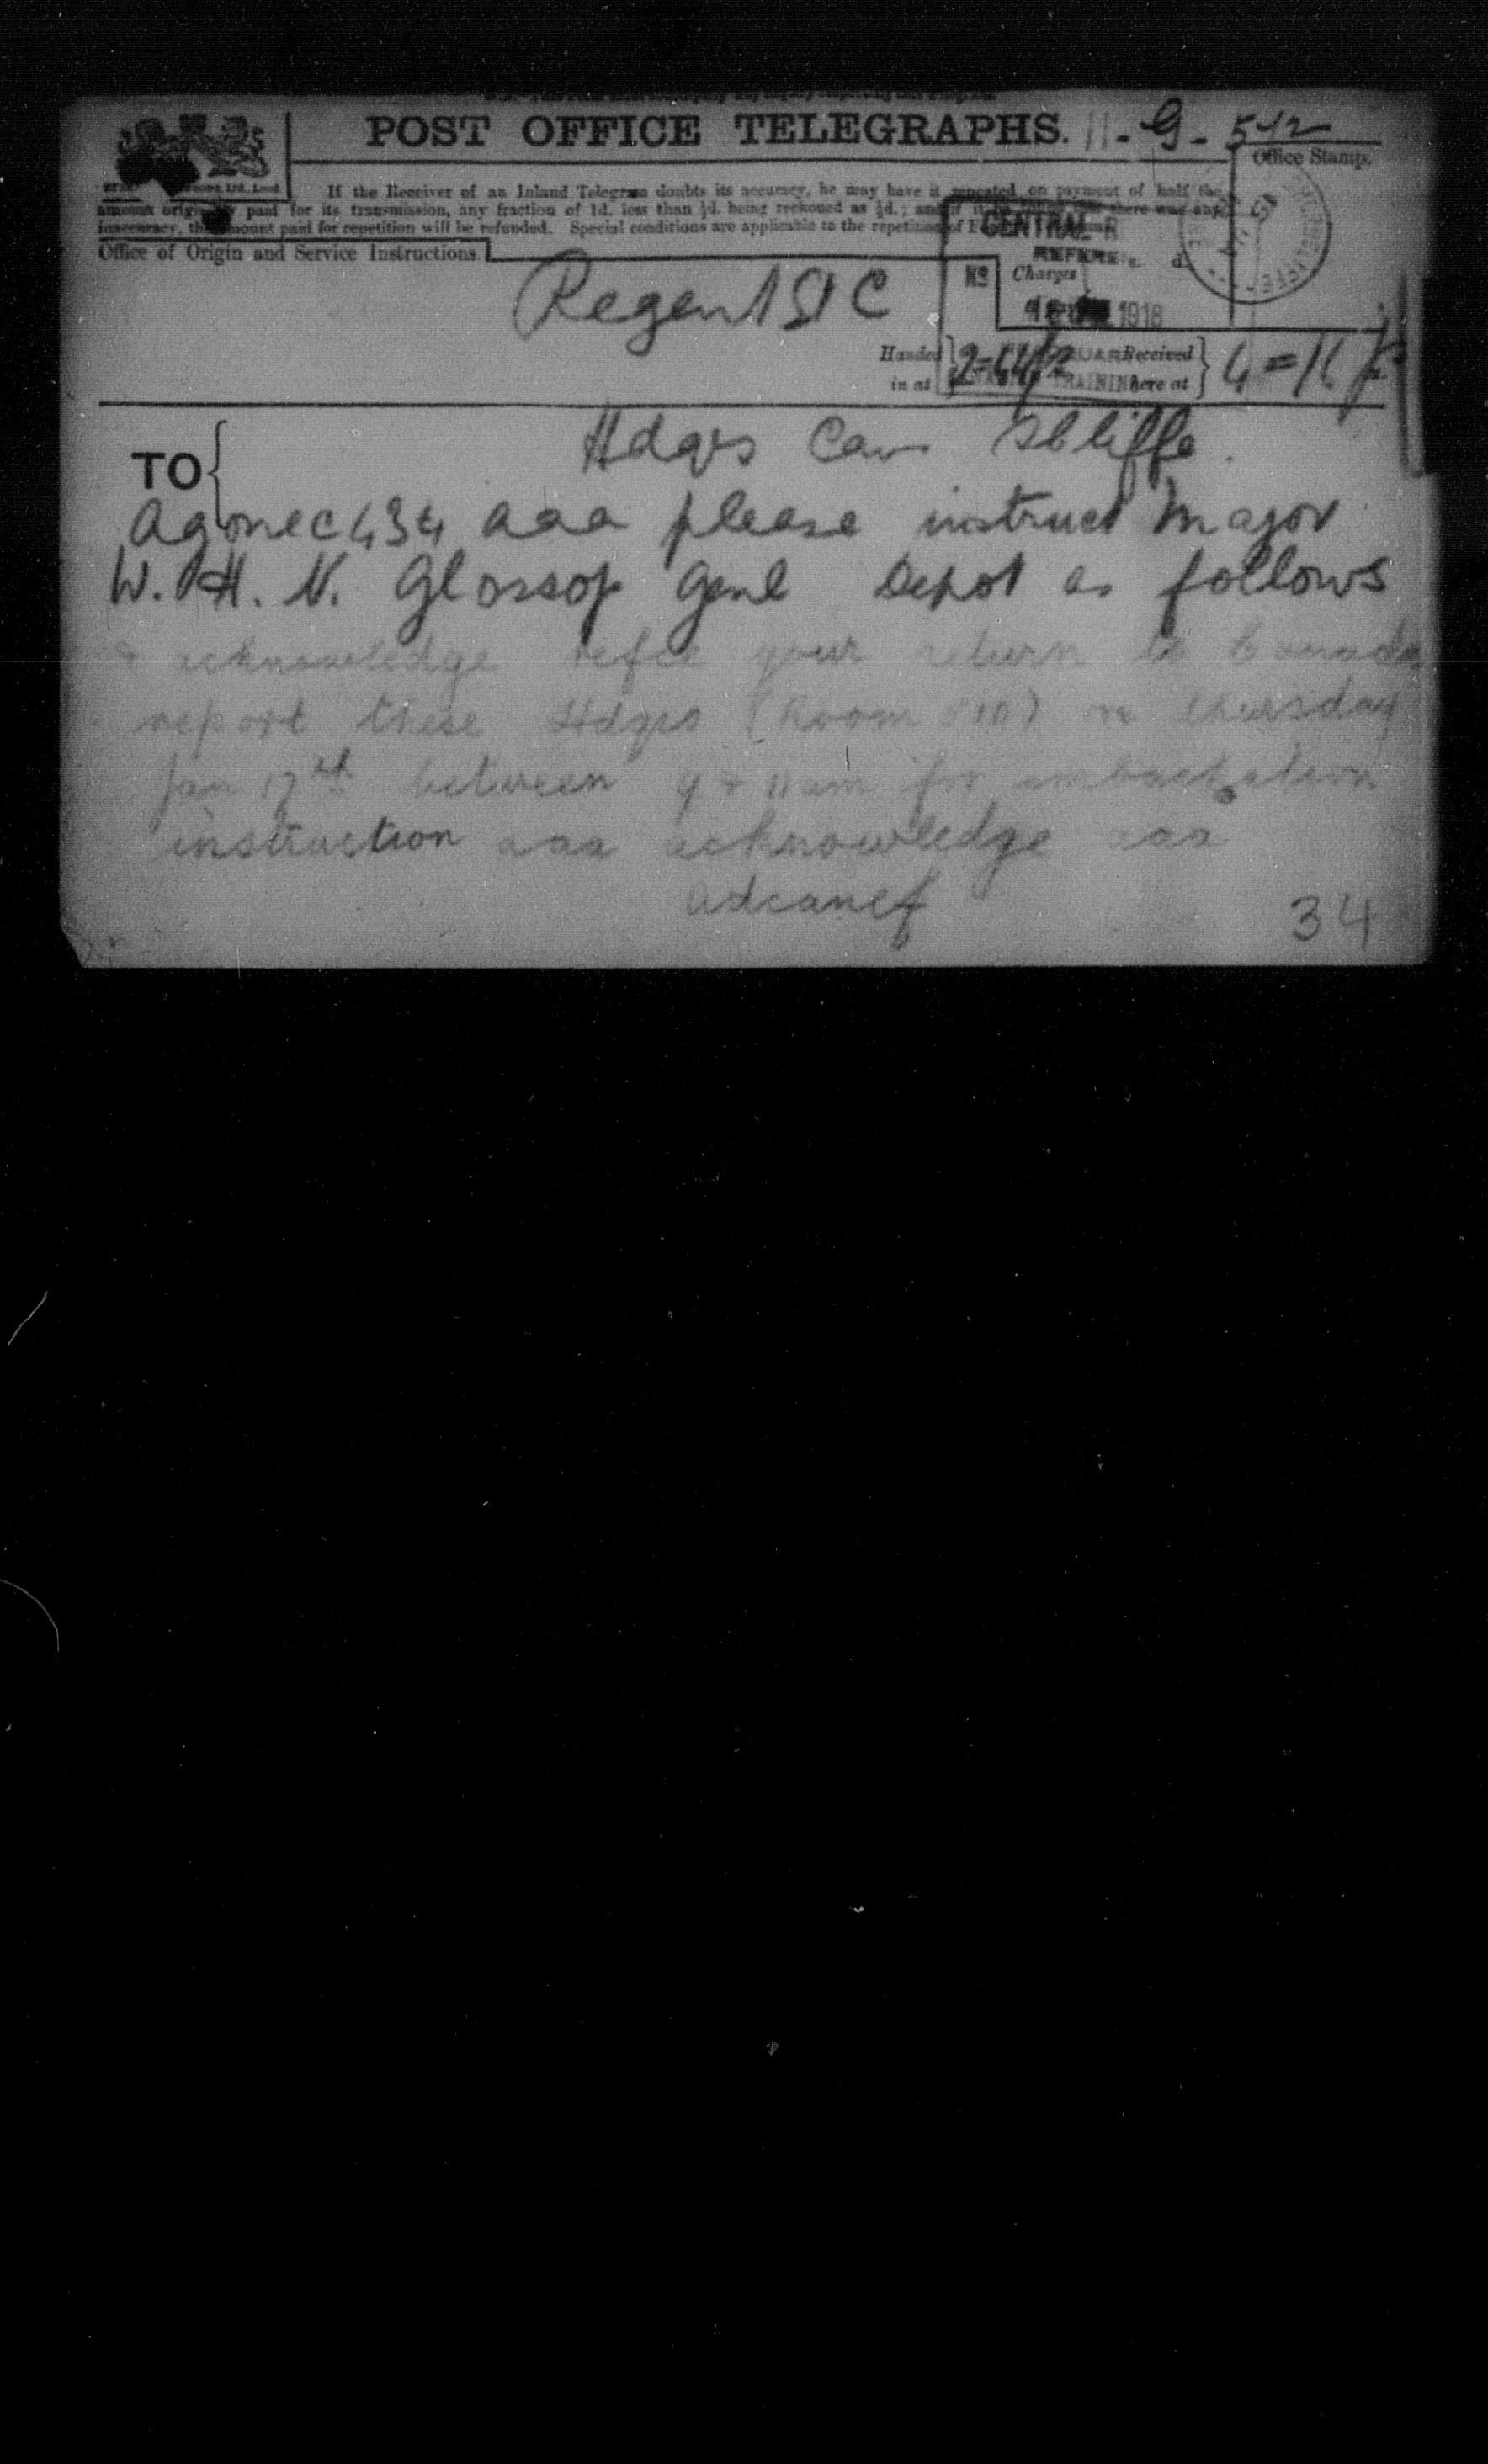 POST OFFICE TELEGRAPHS. 11-9-512
Office Stamp.
If the Receiver of an Inland Telegram doubts its accuracy, he may have it repeated on payment of half the
amount paid for its transmission, any fraction of 1d. less than ½d. being reckoned as ½d.; and if there was any
inaccuracy, the amount paid for repetition will be refunded. Special conditions are applicable to the repetition of
Office of Origin and Service Instructions.
CENTRAL
REFERE
Regent St C
No
Charges
1918
Handed in at
Received here at
TRAINING
TO
Hdqrs Can Shliffe
434 aaa please instruct Major
W. H. N. Glossop Genl Depot as follows
& acknowledge refce your return to Canada
report these Hdqrs (Room 510) on thursday
Jan 17th between 9 & 11 am for embarkation
instruction aaa acknowledge aaa
adcanef
34